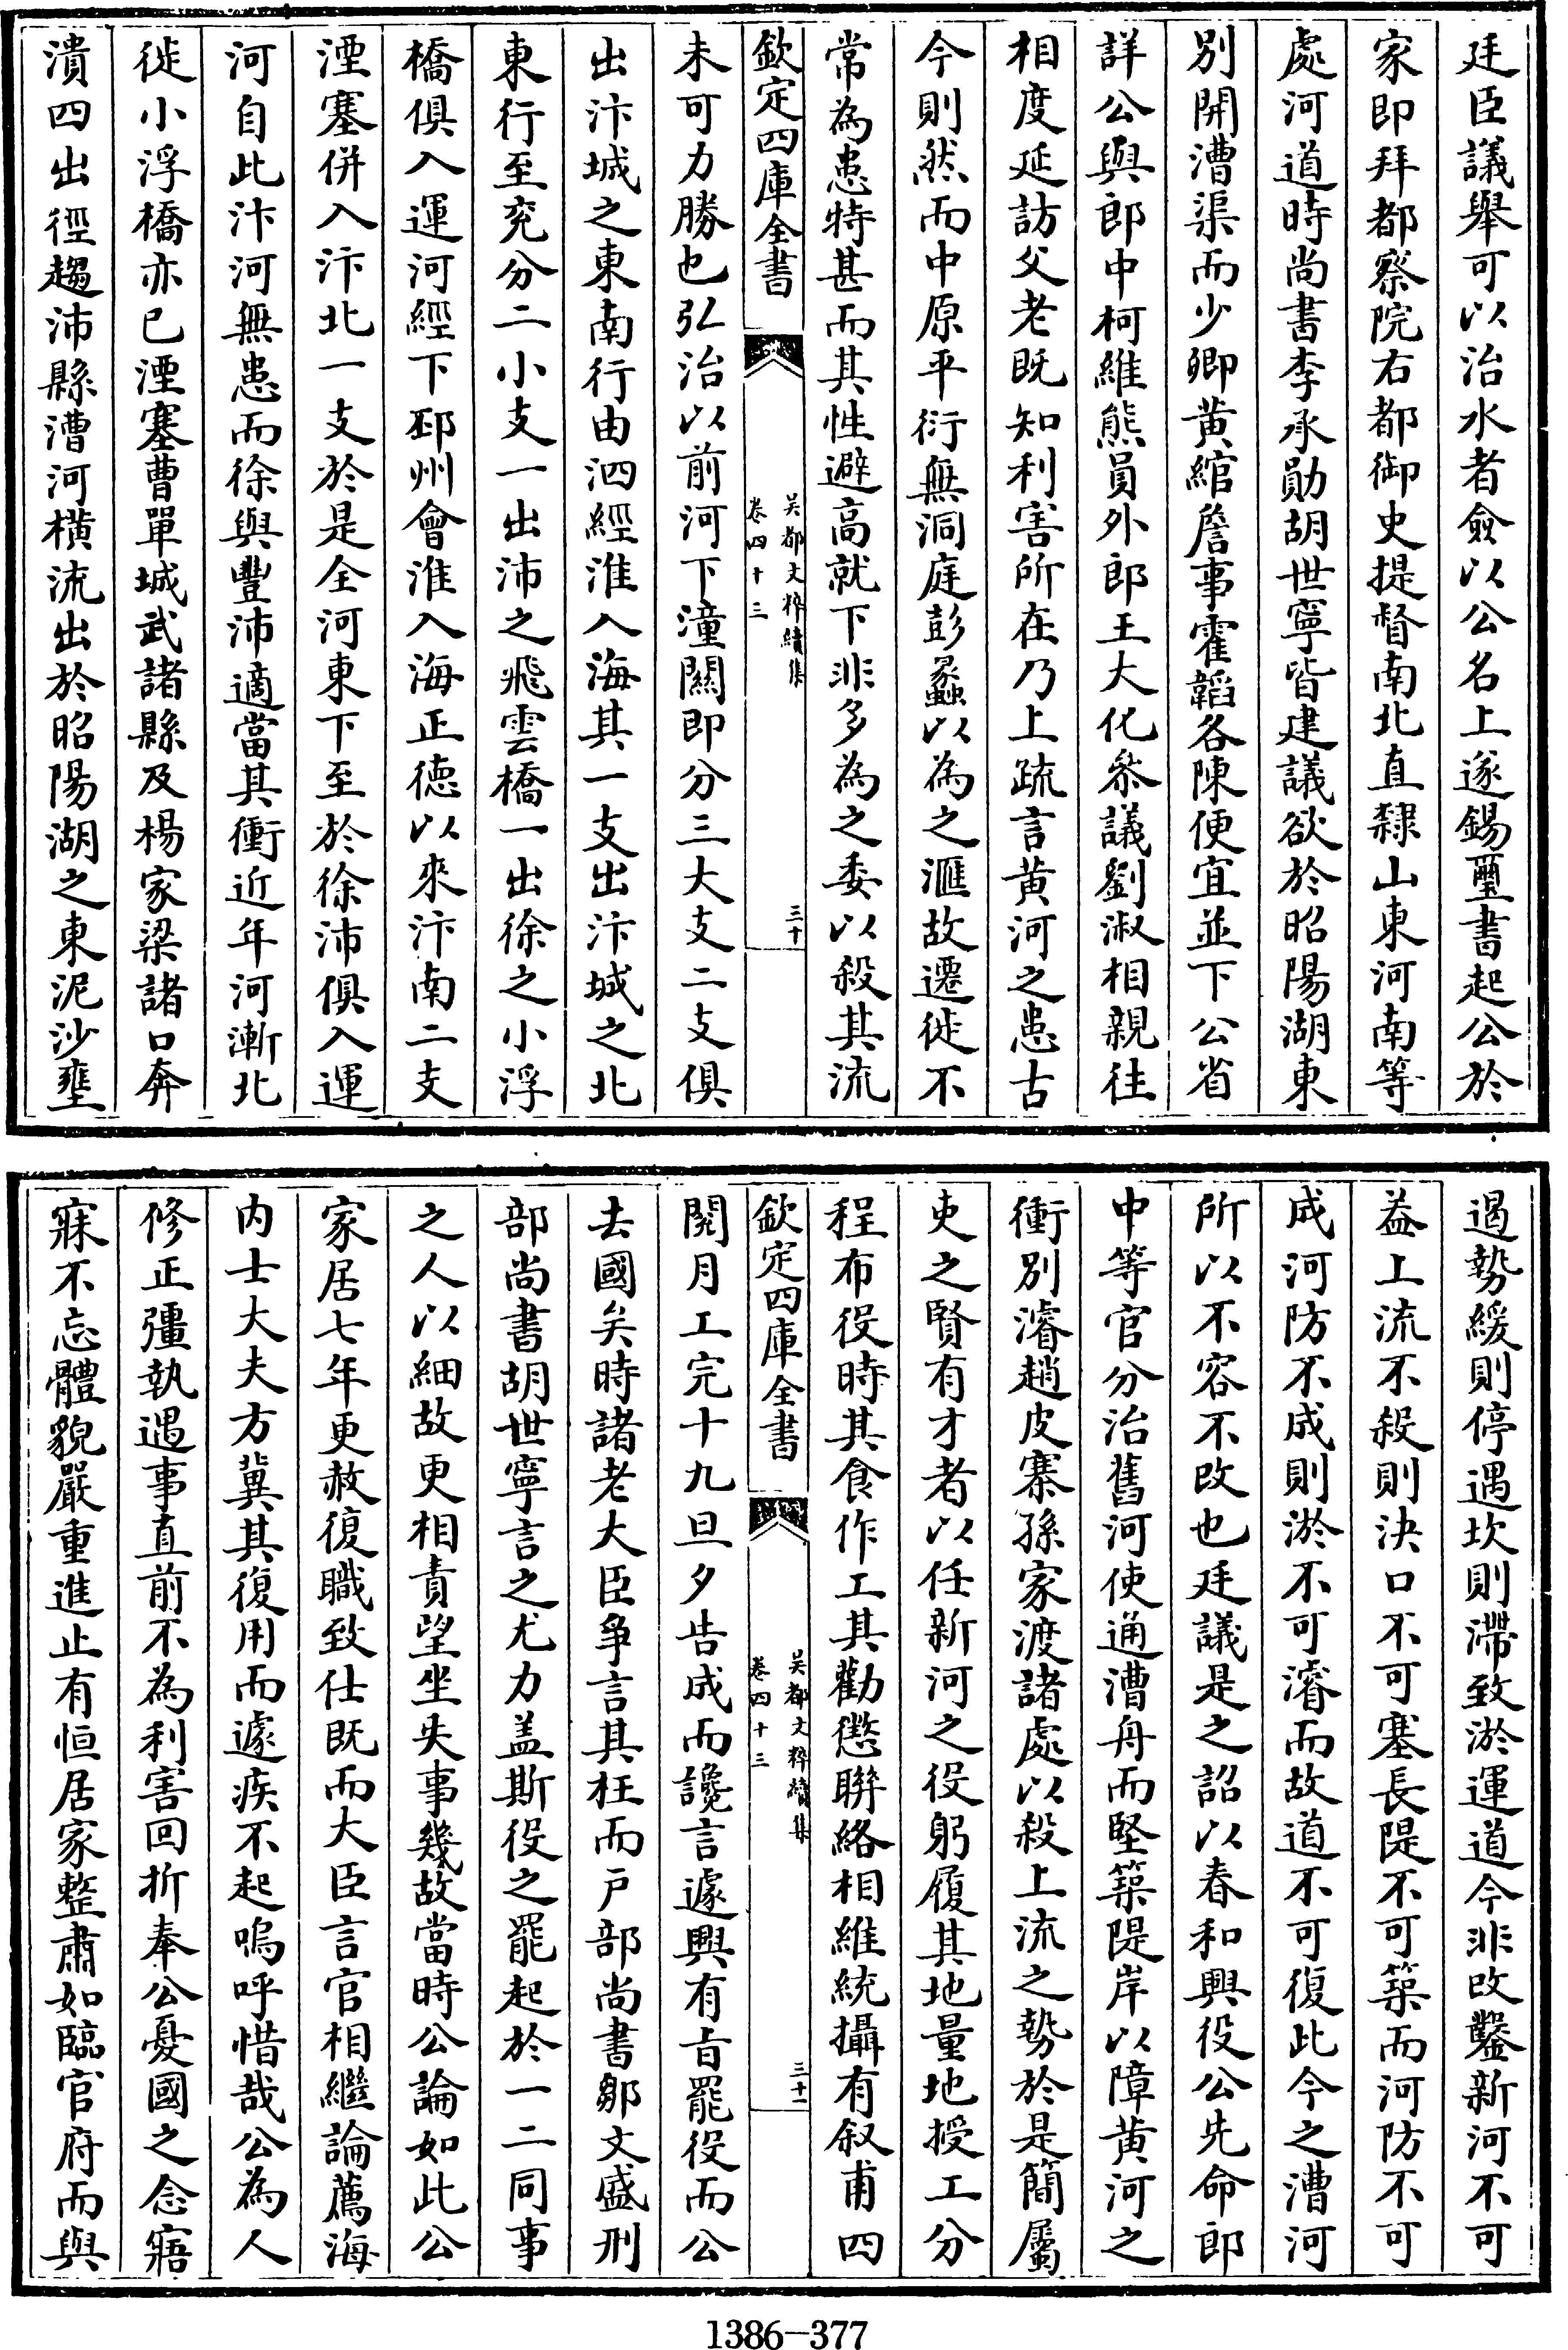 廷臣議舉可以治水者僉以公名上遂錫璽書起公於
家即拜都察院右都御史提督南北直隸山東河南等
處河道時尚書李承勛胡世寧皆建議欲於昭陽湖東
別開漕渠而少卿黄綰詹事霍韜各陳便宜並下公省
詳公與郎中柯維熊員外郎王大化叅議劉淑相親往
相度延訪父老既知利害所在乃上疏言黄河之患古
今則然而中原平衍無洞庭彭蠡以為之滙故遷徙不
常為患特甚而其性避高就下非多為之委以殺其流
欽定四庫全書
吴都文粹續集
卷四十三
三十
未可力勝也弘治以前河下潼關即分三大支二支俱
出汴城之東南行由泗經淮入海其一支出汴城之北
東行至兖分二小支一出沛之飛雲橋一出徐之小浮
橋俱入運河經下邳州會淮入海正徳以來汴南二支
湮塞併入汴北一支於是全河東下至於徐沛俱入運
河自此汴河無患而徐與豐沛適當其衝近年河漸北
徙小浮橋亦已湮塞曹單城武諸縣及楊家梁諸口奔
潰四出徑趨沛縣漕河横流出於昭陽湖之東泥沙壅
遏勢緩則停遇坎則滯致淤運道今非改鑿新河不可
益上流不殺則決口不可塞長隄不可築而河防不可
成河防不成則淤不可濬而故道不可復此今之漕河
所以不容不改也廷議是之詔以春和興役公先命郎
中等官分治舊河使通漕舟而堅築隄岸以障黄河之
衝別濬趙皮寨孫家渡諸處以殺上流之勢於是簡屬
吏之賢有才者以任新河之役躬履其地量地授工分
程布役時其食作工其勸懲聯絡相維統攝有叙甫四
欽定四庫全書
吴都文粹續集
卷四十三
三十一
閱月工完十九旦夕告成而讒言遽興有㫖罷役而公
去國矣時諸老大臣爭言其枉而户部尚書鄒文盛刑
部尚書胡世寧言之尤力盖斯役之罷起於一二同事
之人以細故更相責望坐失事幾故當時公論如此公
家居七年更赦復職致仕既而大臣言官相繼論薦海
内士大夫方冀其復用而遽疾不起嗚呼惜哉公為人
修正彊執遇事直前不為利害回折奉公憂國之念寤
寐不忘體貌嚴重進止有恒居家整肅如臨官府而與
1386-377